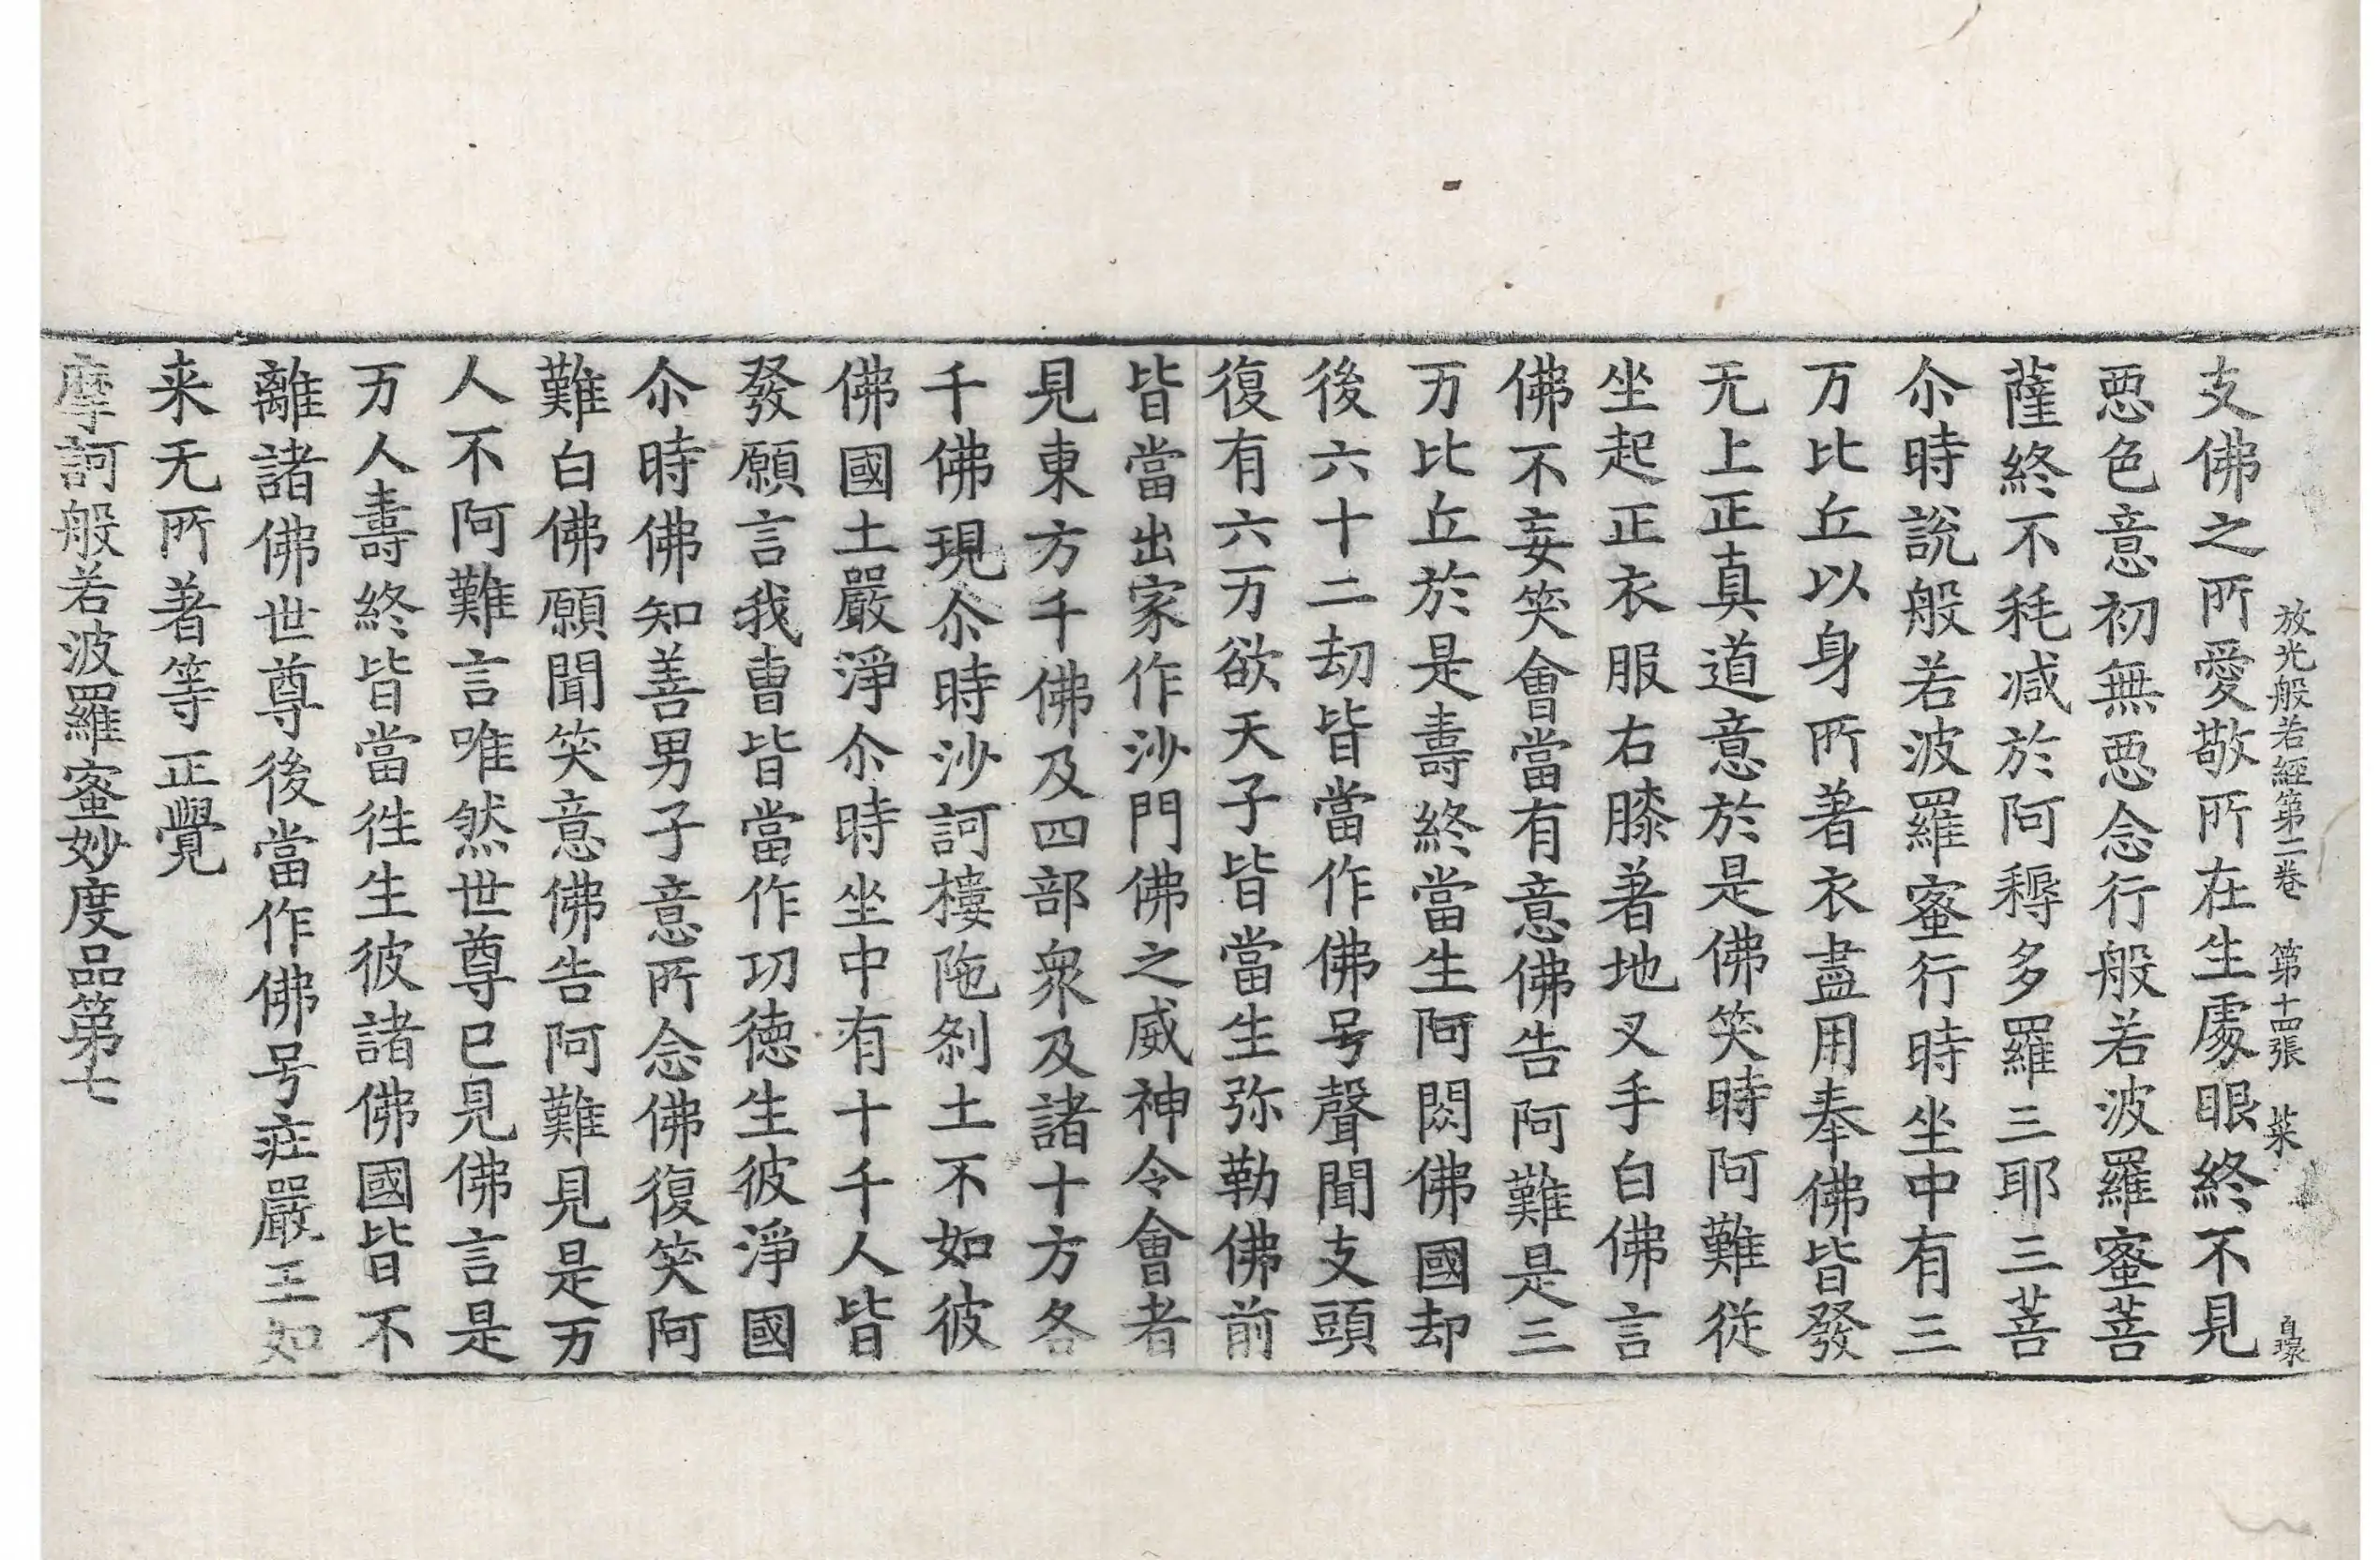 放光般若經第二卷 第十四張 菜
支佛之所愛敬所在生處眼終不見
惡色意初無惡念行般若波羅蜜菩
薩終不耗减於阿耨多羅三耶三菩
尒時說般若波羅蜜行時坐中有三
万比丘以身所著衣盡用奉佛皆發
无上正真道意於是佛笑時阿難從
坐起正衣服右膝著地叉手白佛言
佛不妄笑會當有意佛告阿難是三
万比丘於是壽終當生阿閦佛國却
後六十二劫皆當作佛号聲聞支頭
復有六万欲天子皆當生弥勒佛前
皆當出家作沙門佛之威神令會者
見東方千佛及四部衆及諸十方各
千佛現尒時沙訶樓陁剎土不如彼
佛國土嚴淨尒時坐中有十千人皆
發願言我曹皆當作功徳生彼淨國
尒時佛知善男子意所念佛復笑阿
難白佛願聞笑意佛告阿難見是万
人不阿難言唯然世尊已見佛言是
万人壽終皆當徃生彼諸佛國皆不
離諸佛世尊後當作佛号莊嚴王如
来无所著等正覺
摩訶般若波羅蜜妙度品第七